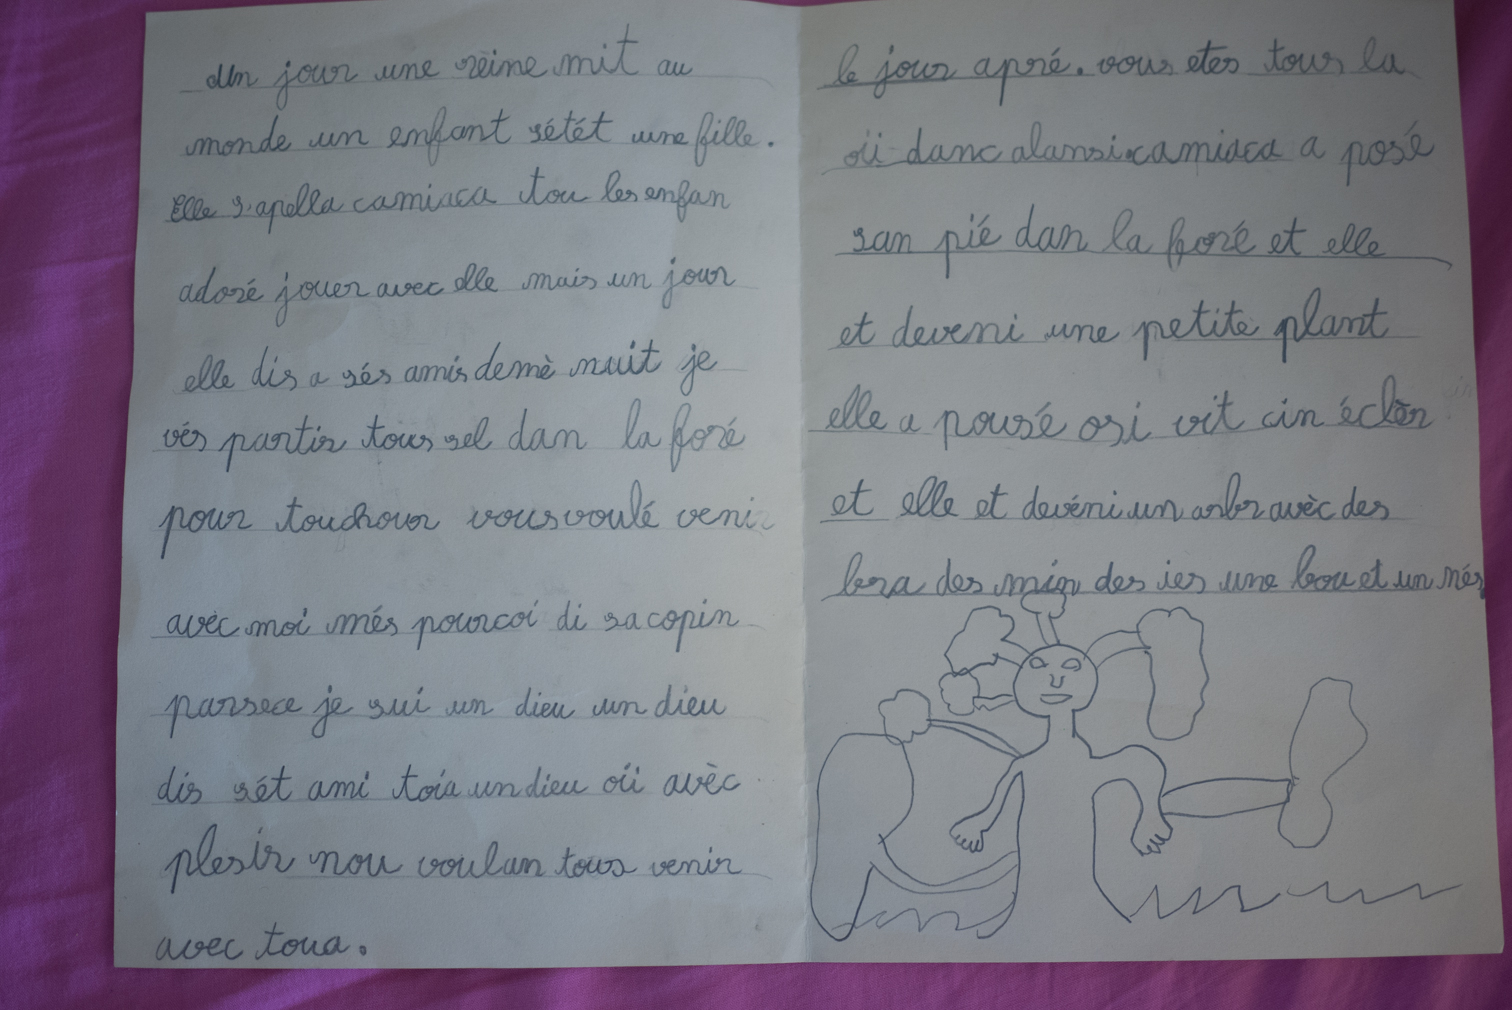 un jour une reine mit au
monde un enfant sétét une fille.
Elle s'apella camiaca tou les enfan
adoré jouer avec elle mais un jour
elle dis a sés amis demè nuit je
vés partir tous sel dan la foré
pour touchour vous voulé venir
avèc moi més pourcoi di sa copin
parsece je sui un dieu un dieu
dis sét ami toia un dieu oÿi avèc
plesir nou voulan tous venir
avec toua.
le jour apré. vous etes tous la
oÿi danc alansi. camiaca a posé
san pié dan la foré et elle
et deveni une petite plant
elle a pousé osi vit cin éclèr
et elle et devéni un arbr avèc des
bra des min des ies une bou et un nés